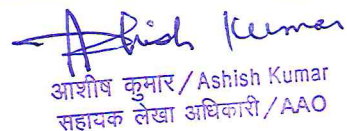 Ashish Kumar
आशीष कुमार / Ashish Kumar
सहायक लेखा अधिकारी / AAO